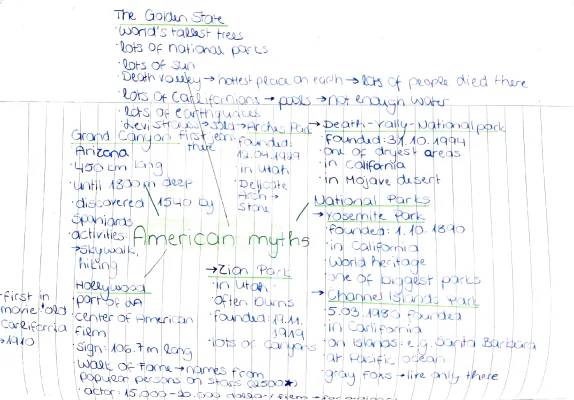 The Golden State
· world's tallest trees
· lots of national parks
· lots of sun
· Death valley → hottest place on earth → lots of people died there
· lots of Californians → pools → not enough water
· lots of earthquakes
· Levi Strauss → sold first
there
Grand Canyon
Arizona
· 450 km long
· until 1800m deep
· discovered 1540 by
Spaniards
· activities:
→ skywalk,
hiking
→ Arches Park
founded:
12.04.1929
· in Utah
· Delicate
Arch →
Stone
→ Death-Vally-Nationalpark
· founded: 31.10.1994
· one of dryest areas
· in California
· in Mojave desert
National Parks
→ Yosemite Park
· founded: 1.10.1890
· in California
· World heritage
· one of biggest parks
→ Channel Islands Park
· 5.03.1980 founded
· in Carlifornia
· on islands: e.g. Santa Barbara
· at Pacific ocean
· gray foxs → live only there
American myths
→ Zion Park
· in Utah
· often burns
· founded: 19.11.
1919
· lots of canyons
Hollywood
· part of LA
· center of American
film
· sign: 106.7m long
· Walk of Fame → names from
popular persons on stars (2500★)
· first in
movie old
Carlifornia
→ 1910